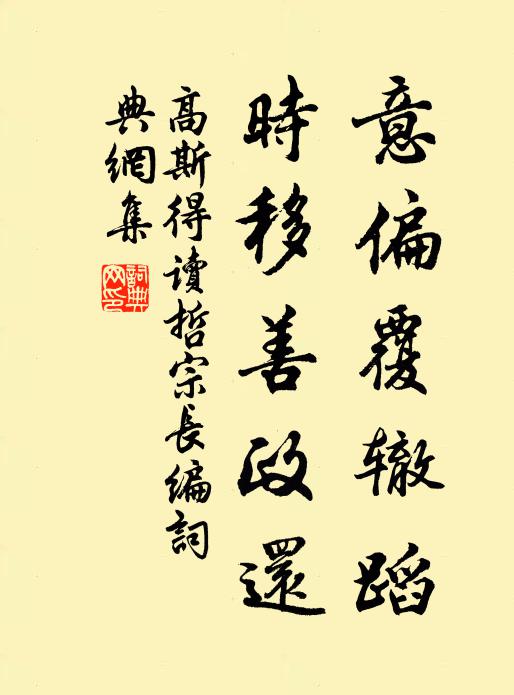 意偏覆辙蹈
時移善政還
高斯得讀哲宗長編詞
典網集
詞典网印